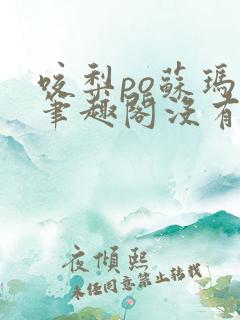 咬梨po蘇瑪
筆趣閣沒有
夜傾熙
未经同意禁止转载